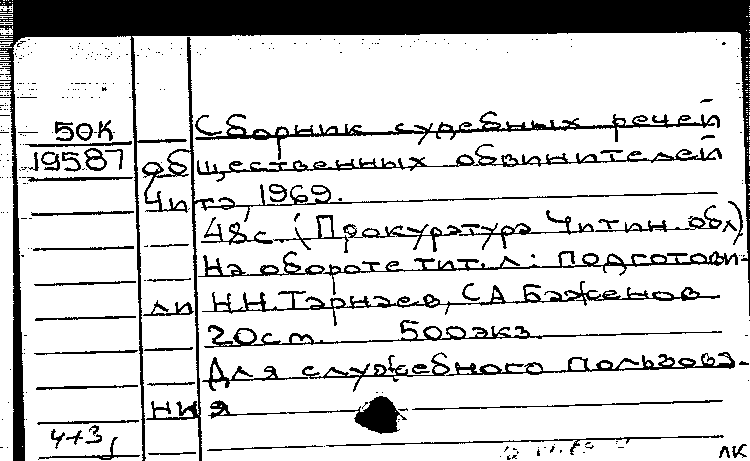 50К Сборник судебных речей
19587 общественных обвинителей
Чита, 1969.
48с. (Прокуратура Читин. обл)
На обороте тит. л: подготови-
ли Н.Н.Тарнаев, С.А Баженов
20см. 500экз.
Для служебного пользова-
ния
4+3
ЛК